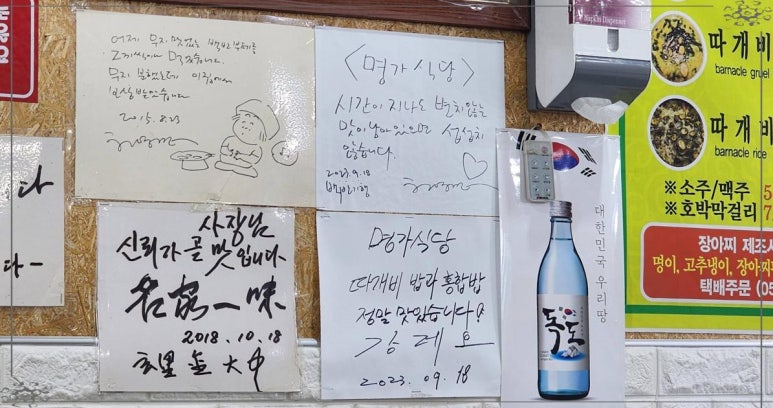 어제 무지 맛없는 백반 부페를
먹었습니다.
무지 불행했는데 이집에서
보상받았습니다
2015.8.23
<명가식당>
시간이 지나도 변치 않는
맛이 남아있으면 섭섭치
않습니다.
2023.9.18
백반기행
다
다-
사장님
신뢰가 곧 맛입니다
一味
2018.10.18
大中
명가식당
따개비 밥과 홍합밥
정말 맛있습니다!
강레오
2023.09.18
Napkin Dispenser
대한민국 우리땅
독도
따개비
barnacle gruel
따개비
barnacle rice
※소주/맥주 5
※호박막걸리 7
장아찌 제조
명이, 고추냉이, 장아찌
택배주문 (05